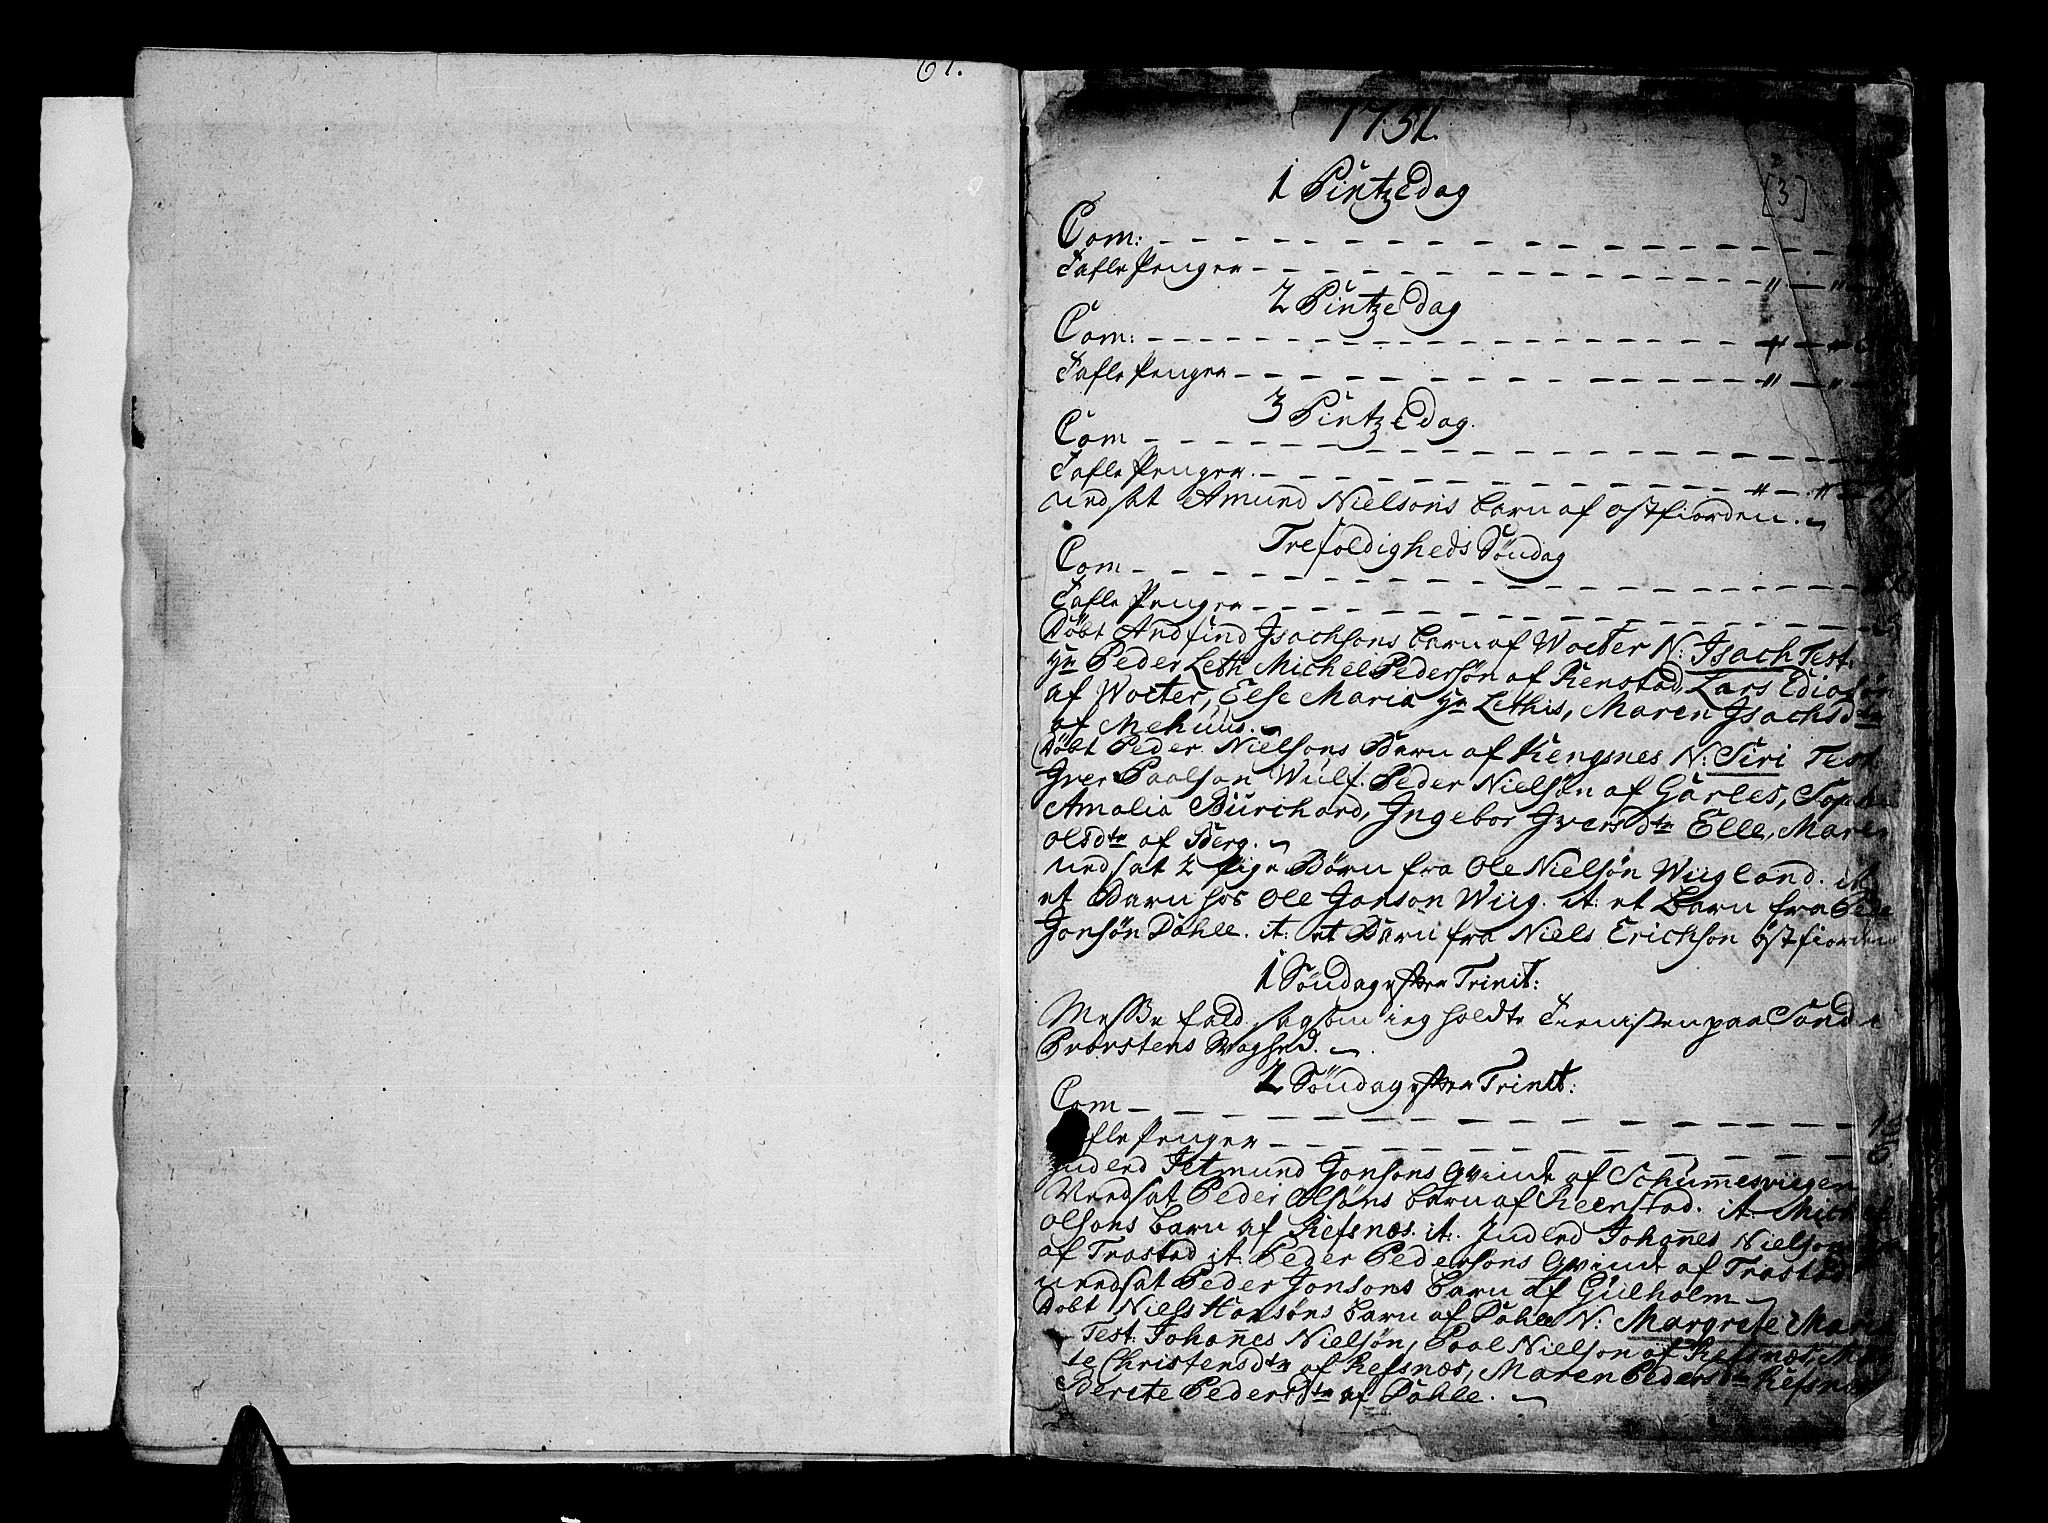 61.
1751.
1 Pintzedag
[3]
Com:
Tafle Penger
2 Pintzedag
Com:
Tafle Penger
3 Pintzedag.
Com
Tafle Penger.
Nedsat Amund Nielsons barn af ostfiorden.
Trefoldigheds Søndag
Com
Tafle Penger
Døbt Andfind Isachsons barn af Wocter N: Isach Test:
Hr Peder Leth Michel Pedersøn af Renstad, Lars
af Wocter, Else Maria Hr Lethis, Maren Isachsdtr
af Mehuus.
Døbt Peder Nielsons Barn af Kengsnes N: Siri Test.
Iver Paalson Wulf. Peder Nielsøn af Garles,
Amalia Burchard, Ingebor Iversdtr Elle, Maren
Olsdtr af Berg.
Nedsat 2 Pige Børn fra Ole Nielsøn Wiigland. it
et Barn hos Ole Jonson Wiig. it: et Barn fra Pede
Jonsøn Dahle. it: et Barn fra Niels Erickson ostfiorden
1 Søndag efter Trinit:
Messe fald, sasom ieg holdte Tienisten paa Sand i
Provstens
2 Søndag efter Trinit:
Com
Tafle Penger
Inderd Jetmund Jonsons Qvinde af
Nedsat Peder Olsøns barn af Reenstad. it: Mich
Olsons barn af Refsnæs. it. Inderd Johannes Nielsons
af Trastad it: Peder Pedersons Qvinde af Trastad
nedsat Peder Jonsons barn af Gulholm
Dobt Niels Hansøns barn af Dahle N: Margrete
Test: Johannes Nielsøn, Paal Nielson af Refsnæs,
te Christensdtr af Refsnæs, Maren Pedersdtr Refsnæs
Berete Pedersdtr af Dahle.